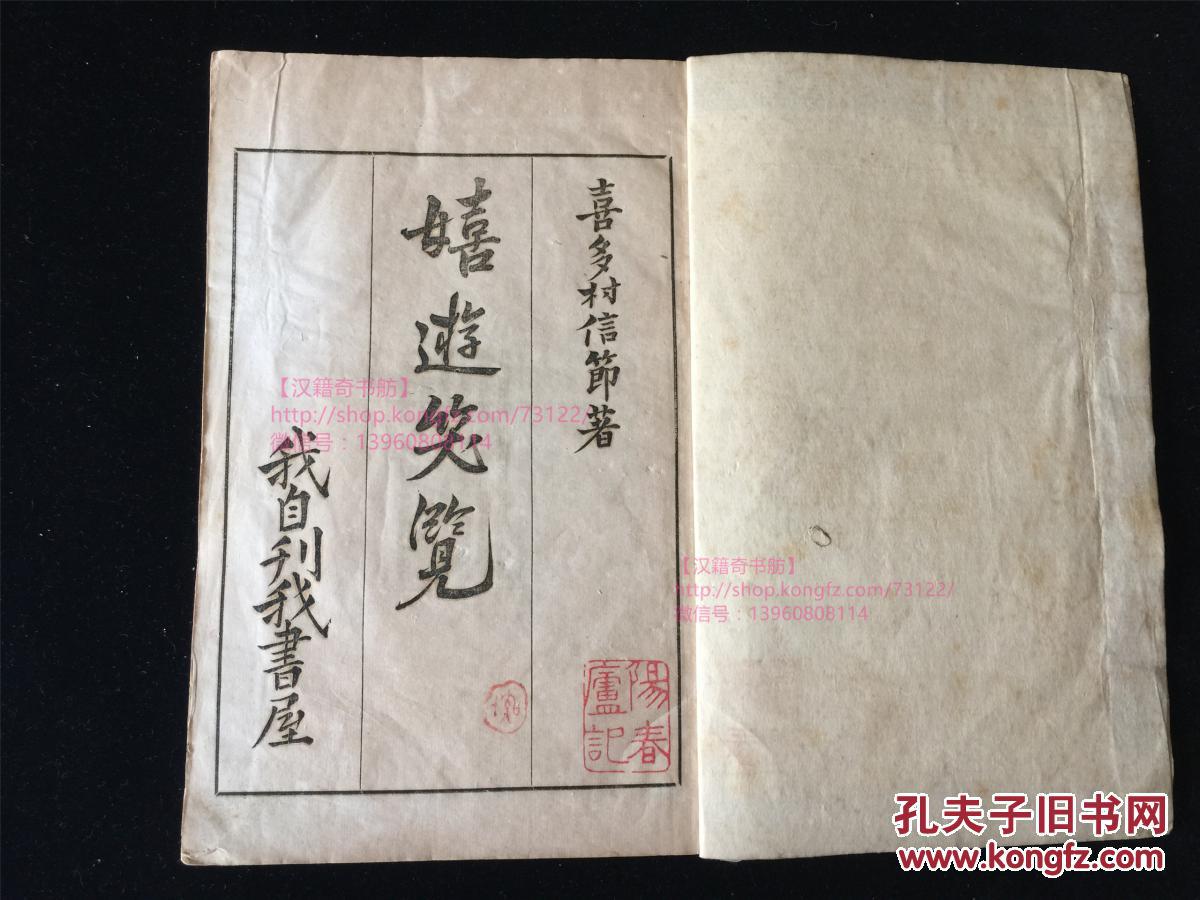 喜多村信節著
嬉遊笑覧
我自刊我書屋
陽春
廬記
【汉籍奇书舫】
http://shop.kongfz.com/73122/
微信号：13960808114
【汉籍奇书舫】
http://shop.kongfz.com/73122/
微信号：13960808114
孔夫子旧书网
www.kongfz.com